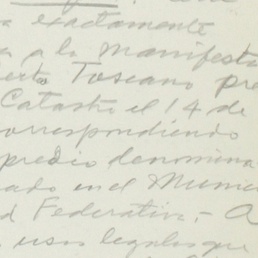 a exactamente
a a la Manifesta
erto Toscano pre
Catastro el 14 de
orrespondiendo
predio denomina
cado en el Munic
d Federativa,- A
usos legales que